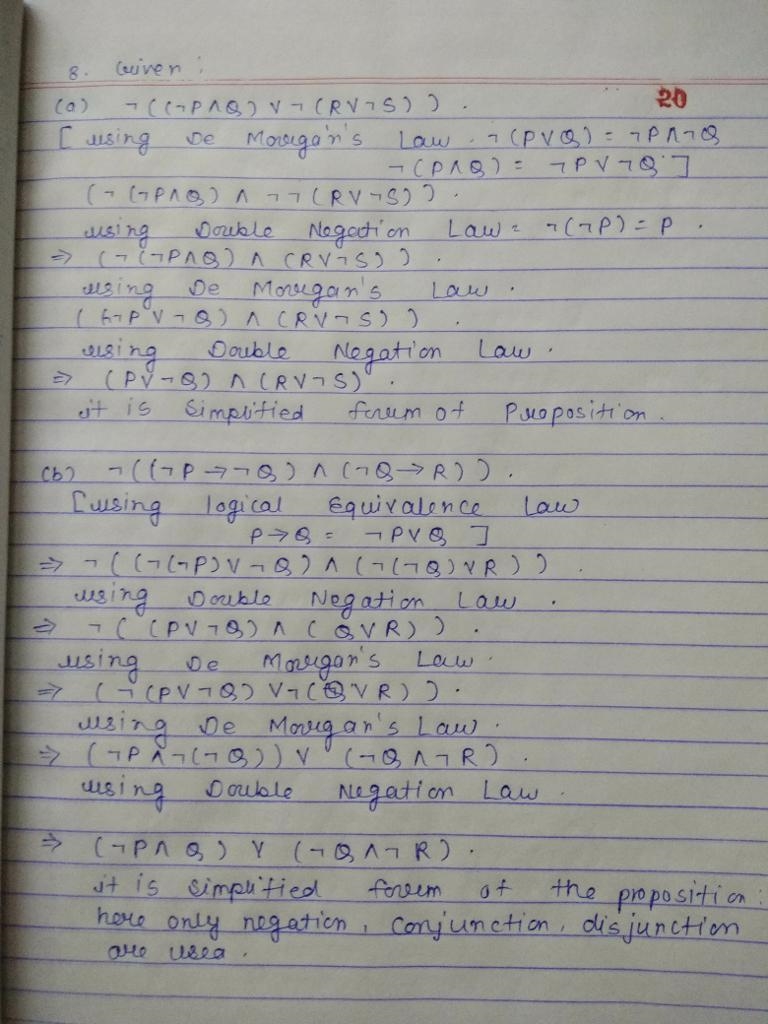 8. Given :
(a) ¬((¬P∧Q) ∨ ¬(R∨¬S)) . 20
[using De Morgan's Law. ¬(P∨Q) = ¬P∧¬Q
¬(P∧Q) = ¬P∨¬Q]
(¬(¬P∧Q) ∧ ¬¬(R∨¬S)) .
using Double Negation Law = ¬(¬P) = P .
⇒ (¬(¬P∧Q) ∧ (R∨¬S)) .
using De Morgan's Law .
(¬¬P ∨ ¬Q) ∧ (R∨¬S)) .
using Double Negation Law .
⇒ (P∨¬Q) ∧ (R∨¬S) .
it is Simplified form of Proposition .
(b) ¬((¬P→¬Q) ∧ (¬Q→R)) .
[using logical Equivalence Law
P→Q = ¬P∨Q ]
⇒ ¬((¬(¬P)∨¬Q) ∧ (¬(¬Q)∨R)) .
using Double Negation Law .
⇒ ¬( (P∨¬Q) ∧ (Q∨R)) .
using De Morgan's Law .
⇒ (¬(P∨¬Q) ∨¬(Q∨R)) .
using De Morgan's Law .
⇒ (¬P∧¬(¬Q)) ∨ (¬Q∧¬R) .
using Double Negation Law .
⇒ (¬P∧Q) ∨ (¬Q∧¬R) .
it is Simplified form of the proposition :
here only negation, Conjunction, disjunction
are used .